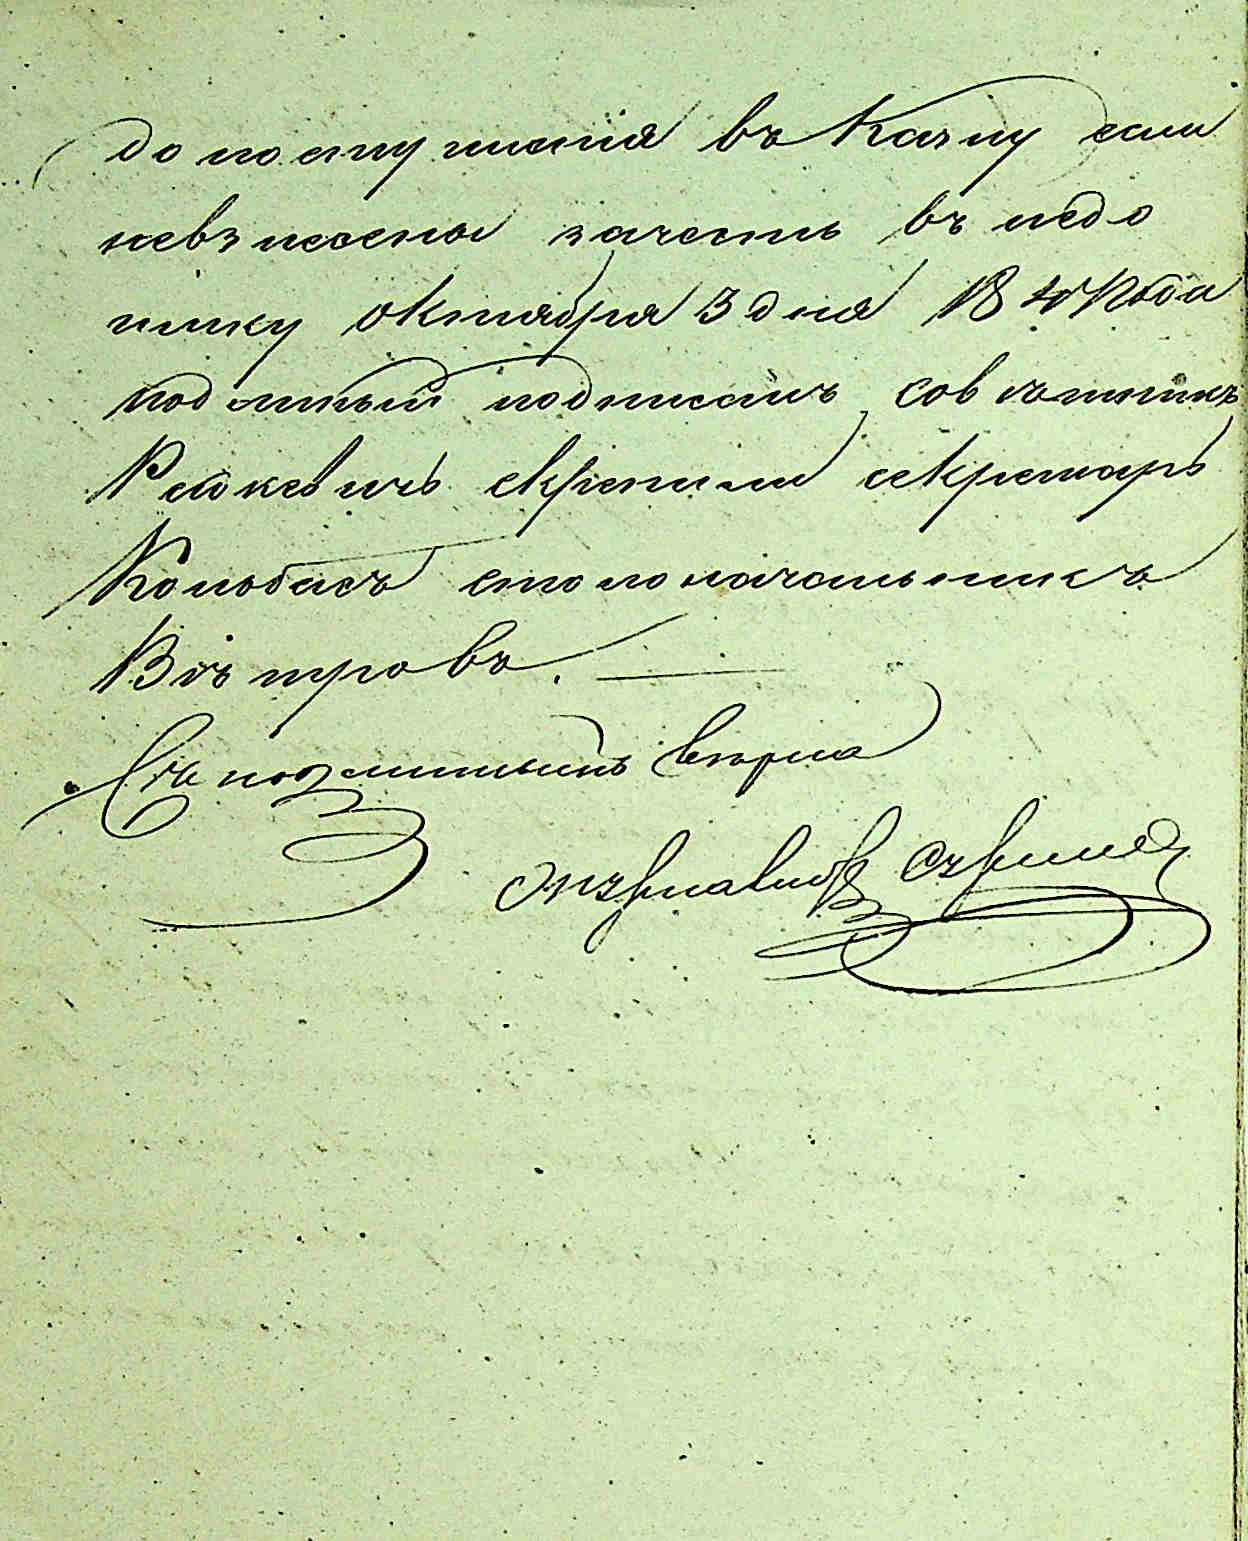 до поступленія въ Казну если
невзнесены зачесть въ недо
имку октября 3 дня 184 года
подлинный подписали совѣтникъ
скрепили секретарь
Колобасъ столоначальникъ
Вѣтровъ.
Съ подлиннымъ верно